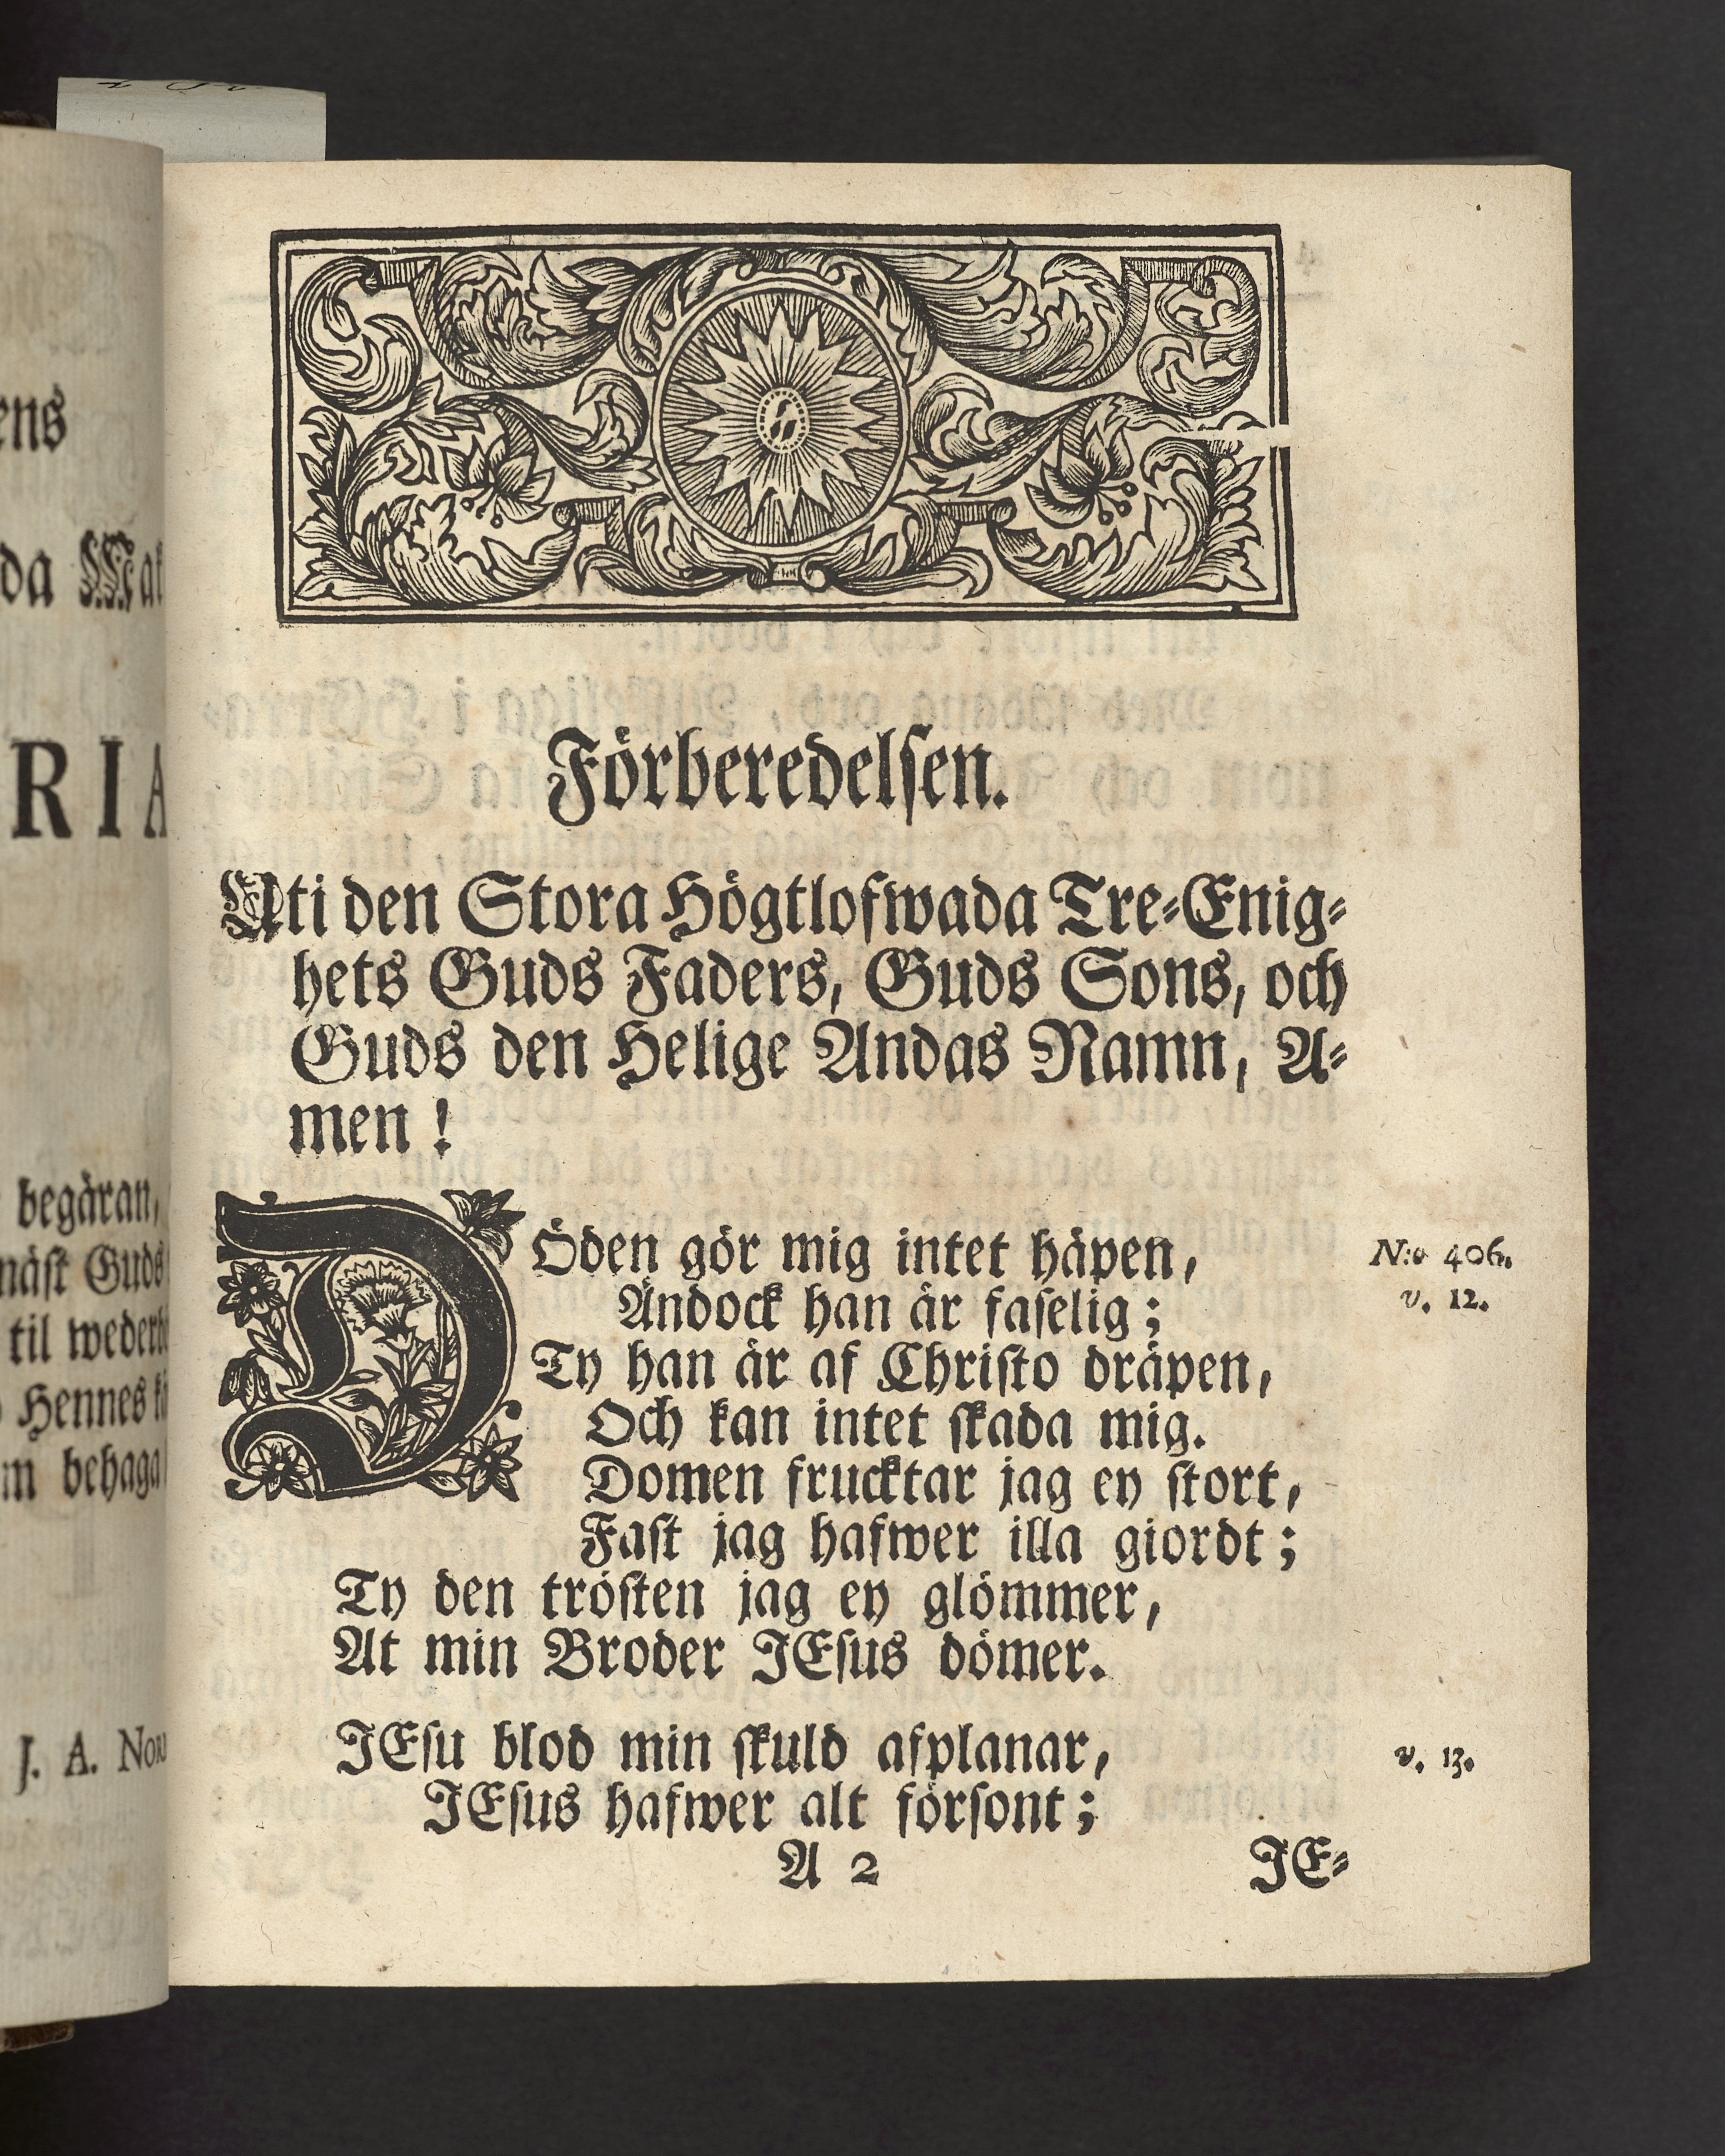 ens
da
RIA
begäran,
näst Guds
til
Hennes
behaga
J. A.
Förberedelsen.
Uti den Stora Högtlofwada Tre-Enig-
hets Guds Faders, Guds Sons, och
Guds den Helige Andas Namn, A-
men !
DÖden gör mig intet häpen,
N:o 406.
Ändock han är faselig ;
v. 12.
Ty han är af Christo dräpen,
Och kan intet skada mig.
Domen frucktar jag ey stort,
Fast jag hafwer illa giordt ;
Ty den trösten jag ey glömmer,
At min Broder JEsus dömer.
JEsu blod min skuld afplanar,
v. 13.
JEsus hafwer alt försont ;
A 2
JE-